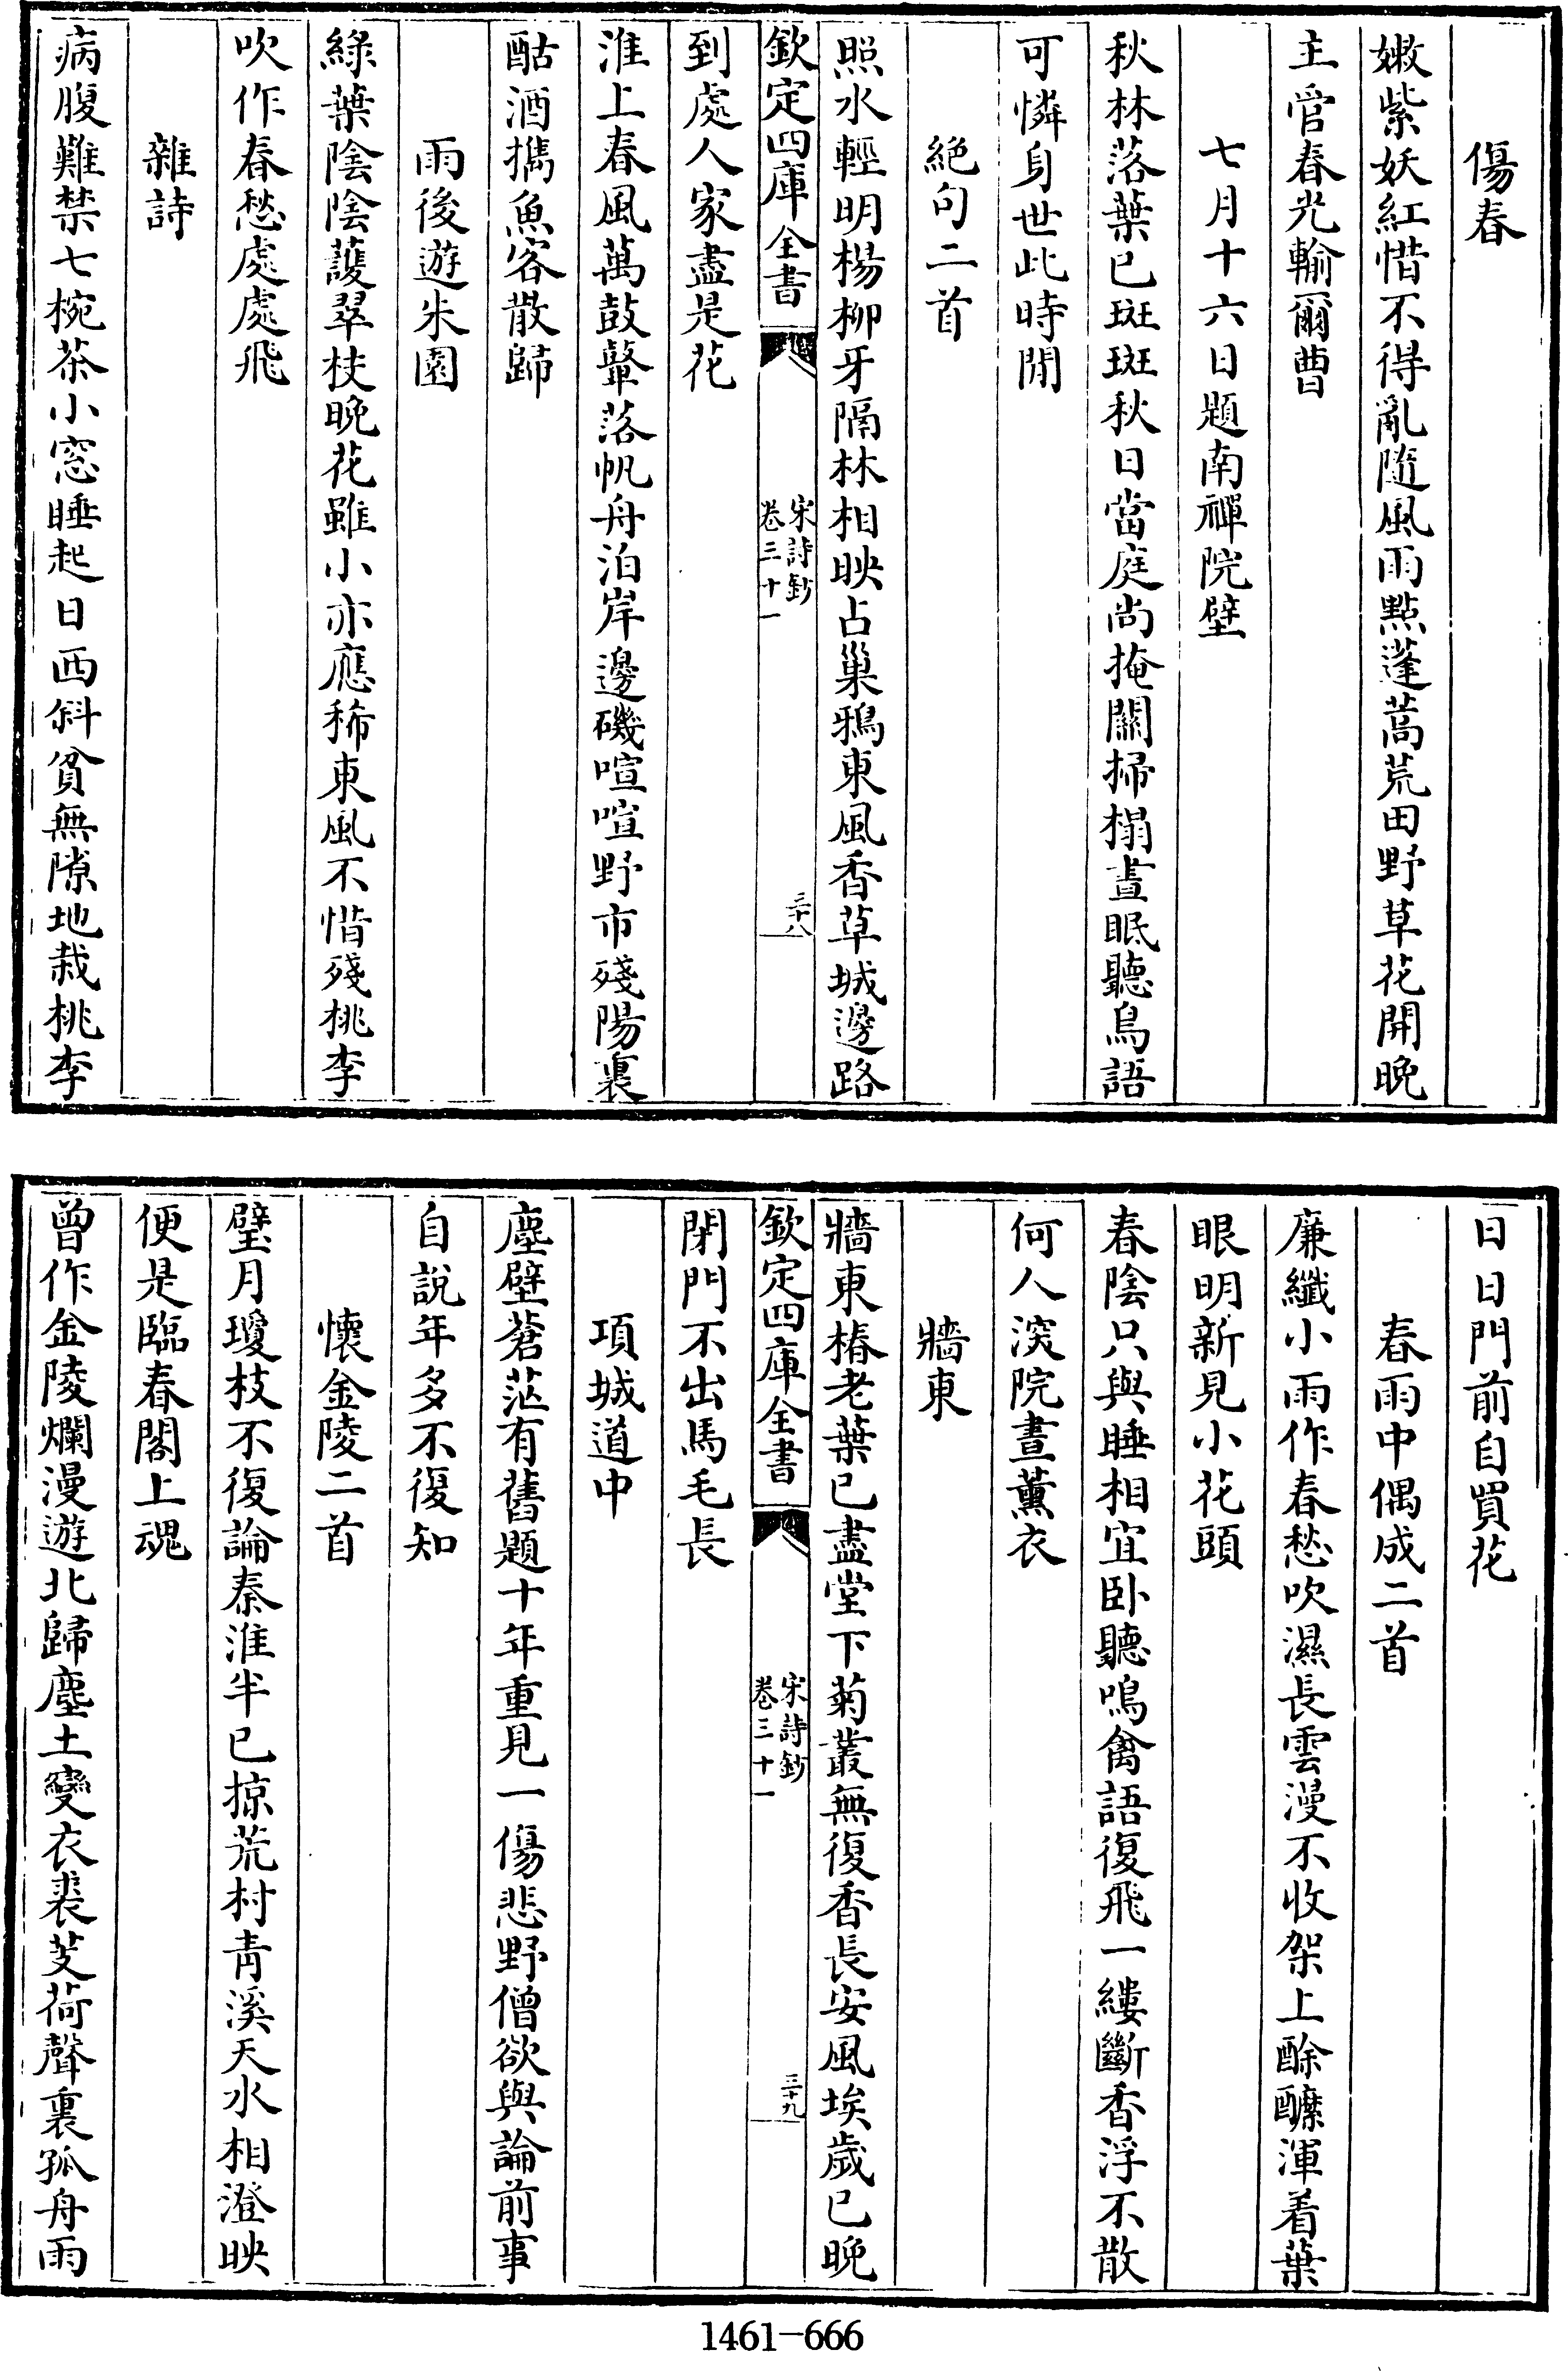 傷春
嫩紫妖紅惜不得亂隨風雨點蓬蒿荒田野草花開晚
主管春光輸爾曹
七月十六日題南禪院壁
秋林落葉已斑斑秋日當庭尚掩關掃榻晝眠聽鳥語
可憐身世此時閒
絕句二首
照水輕明楊柳牙隔林相映占巢鴉東風香草城邊路
欽定四庫全書
宋詩鈔
卷三十一
三十八
到處人家盡是花
淮上春風萬鼓鼙落帆舟泊岸邊磯喧喧野市殘陽裏
酤酒攜魚客散歸
雨後遊朱園
綠葉陰陰護翠枝晚花雖小亦應稀東風不惜殘桃李
吹作春愁處處飛
雜詩
病腹難禁七椀茶小窓睡起日西斜貧無隙地栽桃李
日日門前自買花
春雨中偶成二首
廉纖小雨作春愁吹濕長雲漫不收架上酴醿渾着葉
眼明新見小花頭
春陰只與睡相宜卧聽鳴禽語復飛一縷斷香浮不散
何人深院晝薰衣
牆東
牆東椿老葉已盡堂下菊叢無復香長安風埃歲已晚
欽定四庫全書
宋詩鈔
卷三十一
三十九
閉門不出馬毛長
項城道中
塵壁蒼茫有舊題十年重見一傷悲野僧欲與論前事
自說年多不復知
懷金陵二首
璧月瓊枝不復論秦淮半已掠荒村青溪天水相澄映
便是臨春閣上魂
曾作金陵爛漫遊北歸塵土變衣裘芰荷聲裏孤舟雨
1461-666